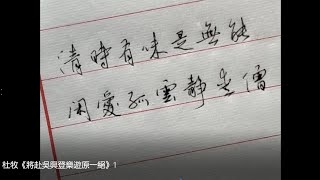 清時有味是無能
閑愛孤雲靜愛僧
杜牧《將赴吳興登樂遊原一絕》1